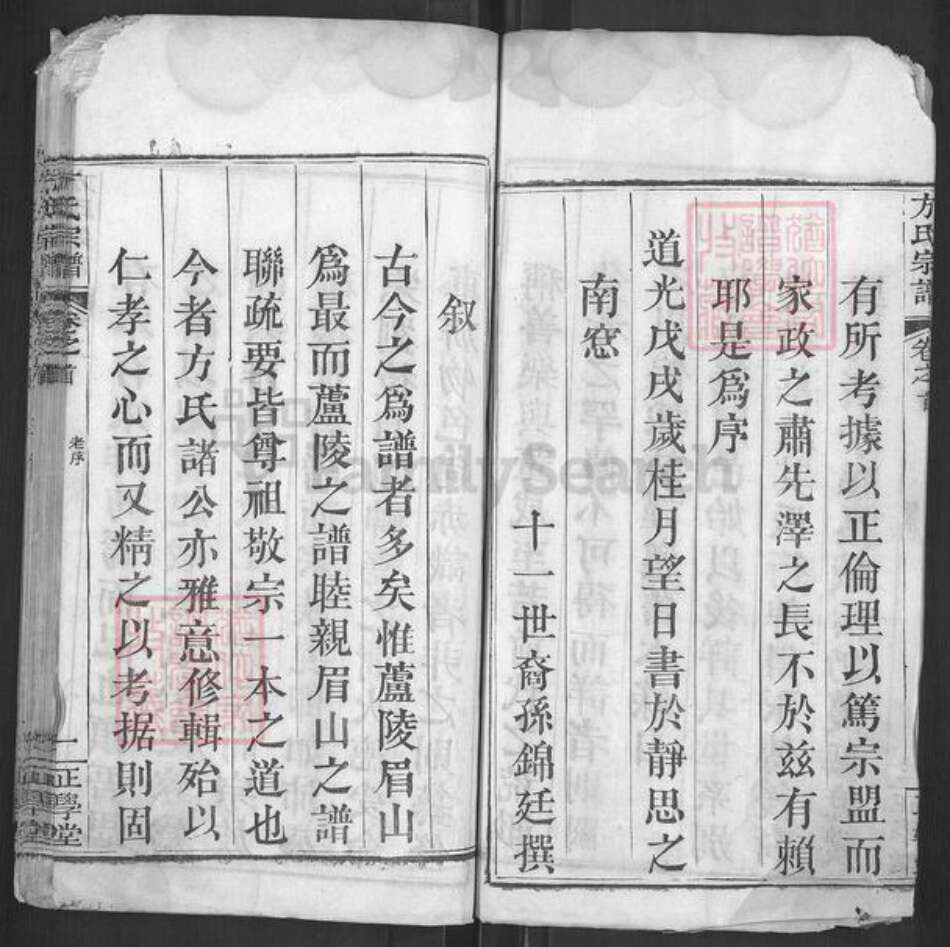 方氏宗譜
卷之首
有所考據以正倫理以篤宗盟而
家政之肅先澤之長不於兹有賴
耶是爲序
道光戊戌歲桂月望日書於靜思之
南窓
十一世裔孫錦廷撰
叙
古今之爲譜者多矣惟蘆陵眉山
爲最而蘆陵之譜睦親眉山之譜
聯疏要皆尊祖敬宗一本之道也
今者方氏諸公亦雅意修輯殆以
仁孝之心而又精之以考据則固
氏宗譜
卷之首
老序
一
正學堂
FamilySearch